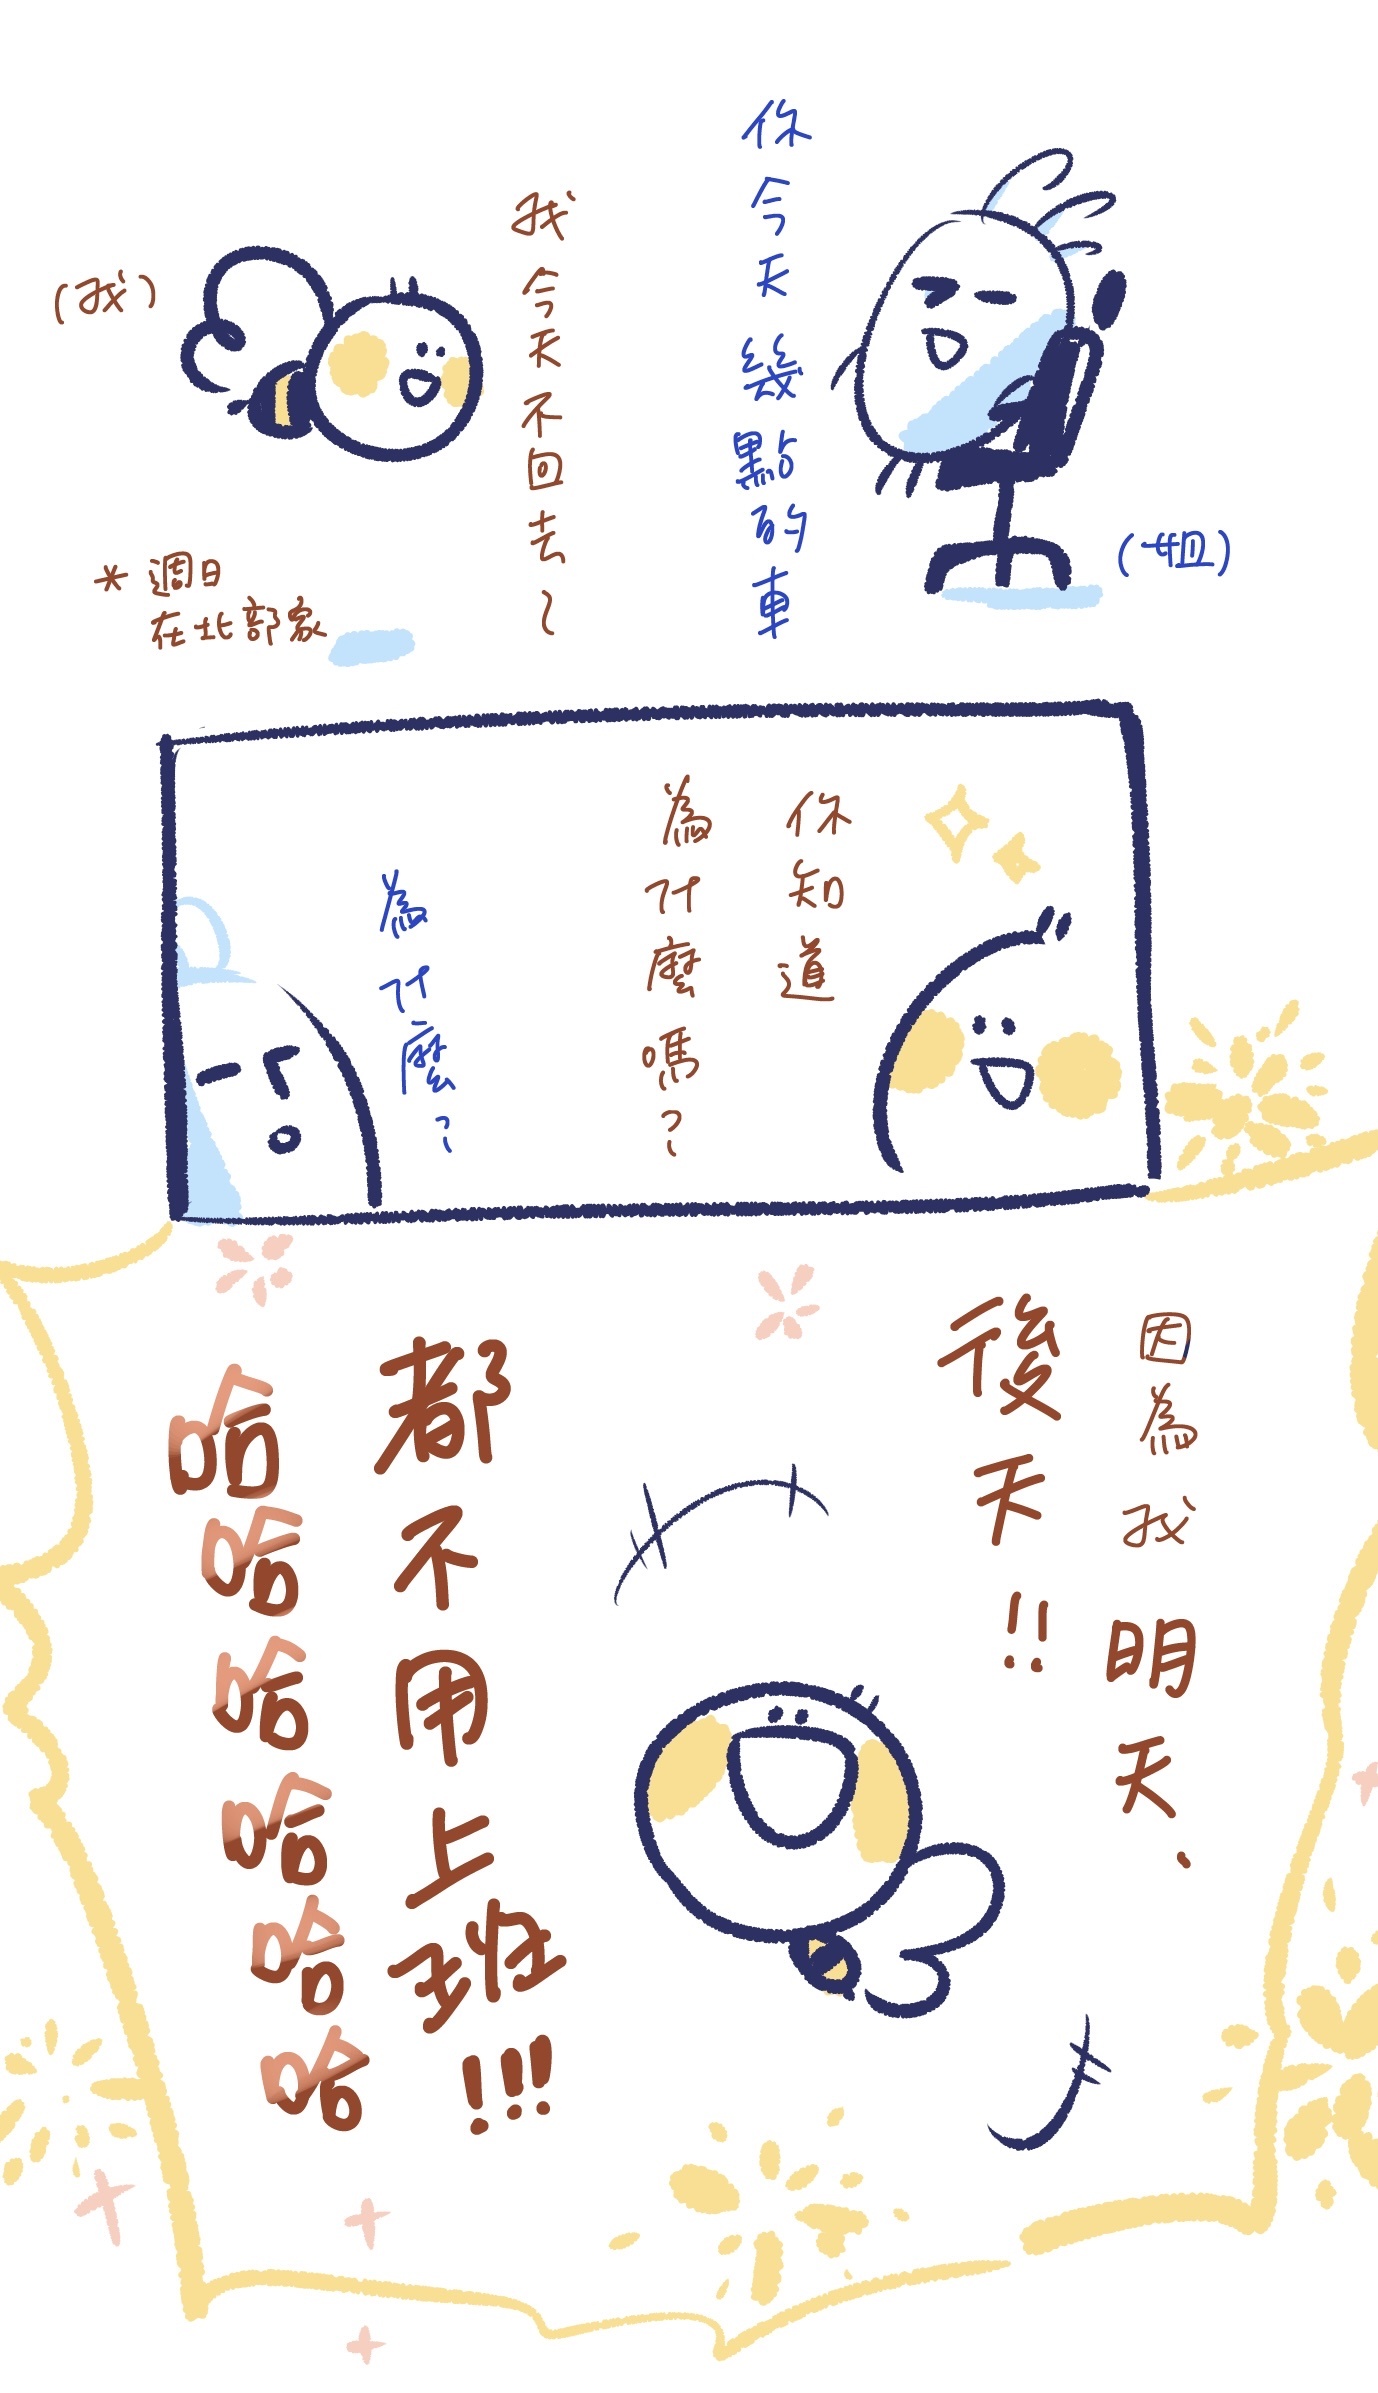 你今天幾點的車
(姐)
我今天不回去~
(我)
*週日
在北部家
你知道
為什麼嗎?
為什麼?
因為我明天、
後天!!
都不用上班!!!
哈哈哈哈哈哈